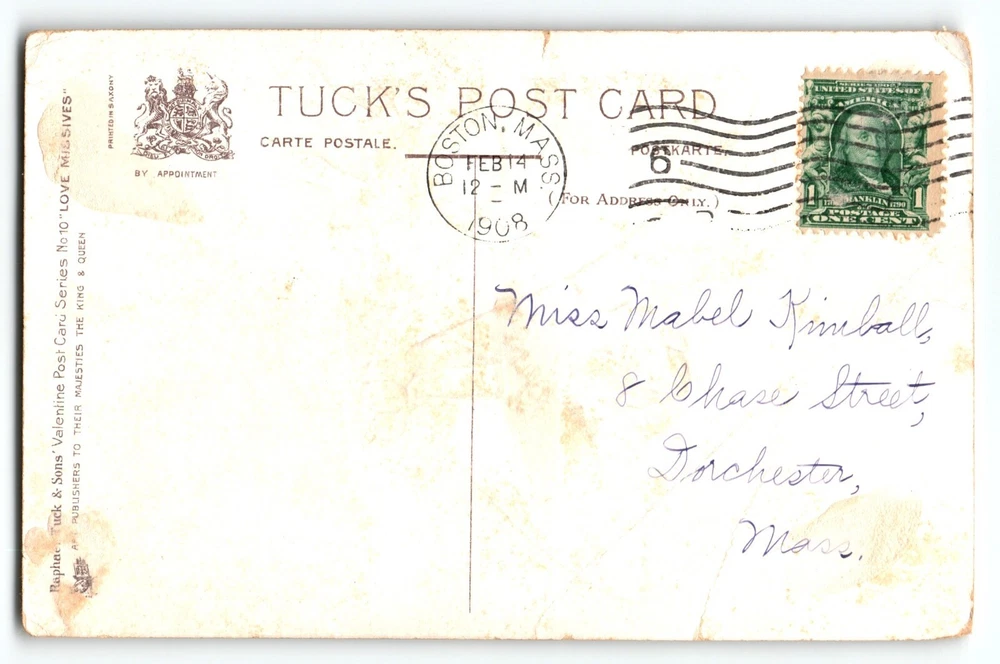 TUCK'S POST CARD
CARTE POSTALE.
POSTKARTE.
(FOR ADDRESS ONLY.)
BY APPOINTMENT
PRINTED IN SAXONY
Raphael Tuck & Sons' Valentine Post Card Series No 10 "LOVE MISSIVES"
ART PUBLISHERS TO THEIR MAJESTIES THE KING & QUEEN
BOSTON, MASS.
FEB 14
12 - M
1908
6
UNITED STATES OF
AMERICA
FRANKLIN 1790
1 1
POSTAGE
ONE CENT
Miss Mabel Kimball,
8 Chase Street,
Dorchester,
Mass.